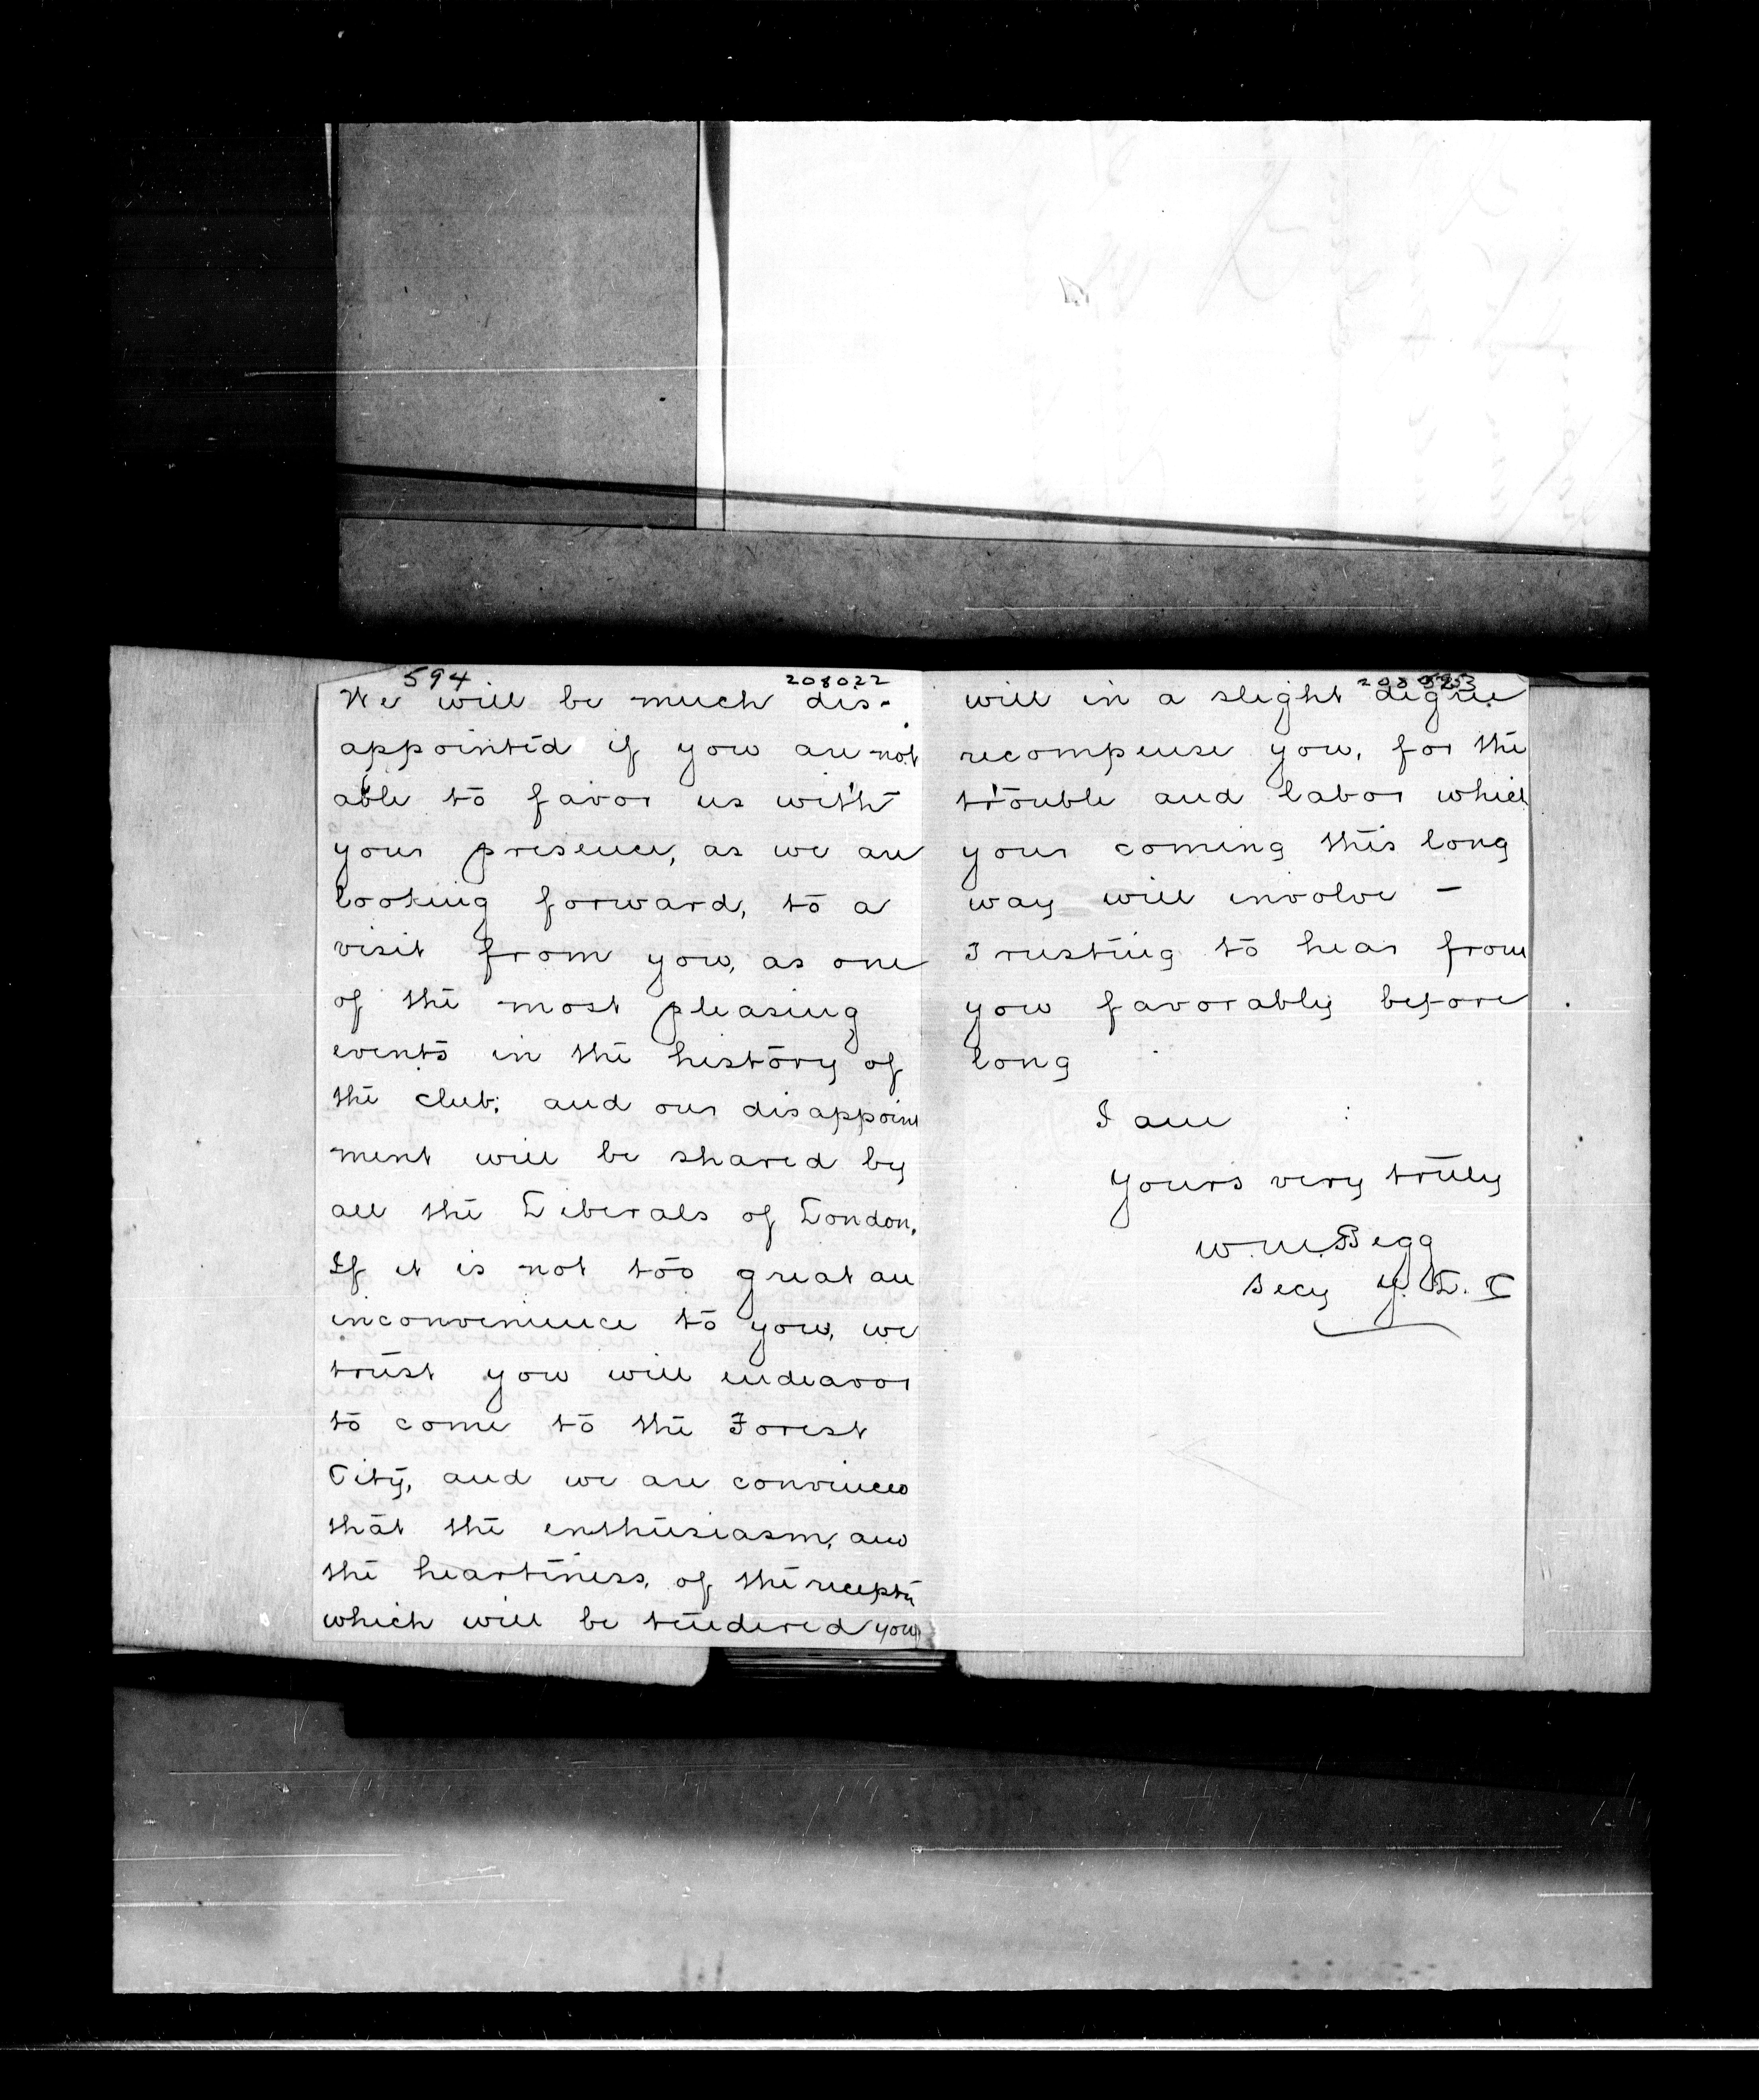 594 208022
We will be much dis-
appointed if you are not
able to favor us with
your presence, as we are
looking forward, to a
visit from you, as one
of the most pleasing
events in the history of
the club; and our disappoint
ment will be shared by
all the Liberals of London.
If it is not too great an
inconvenience to you, we
trust you will endeavor
to come to the Forest
City, and we are convinced
that the enthusiasm, and
the heartiness, of the
which will be tendered you
will in a slight degree
recompense you, for the
trouble and labor which
your coming this long
way will involve —
Trusting to hear from
you favorably before
long
I am
Yours very truly
W. M. Begg
Secy Y. L. C